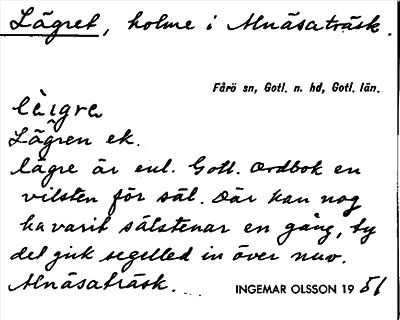 Lägret, holme i Alnäsaträsk.
Fårö sn, Gotl. n. hd, Gotl. län.
lèigrə
Lägren ek.
lägre är enl. Gotl. Ordbok en
vilsten för säl. Där kan nog
ha varit sälstenar en gång, ty
det gick segelled in över nuv.
Alnäsaträsk.
INGEMAR OLSSON 19 51